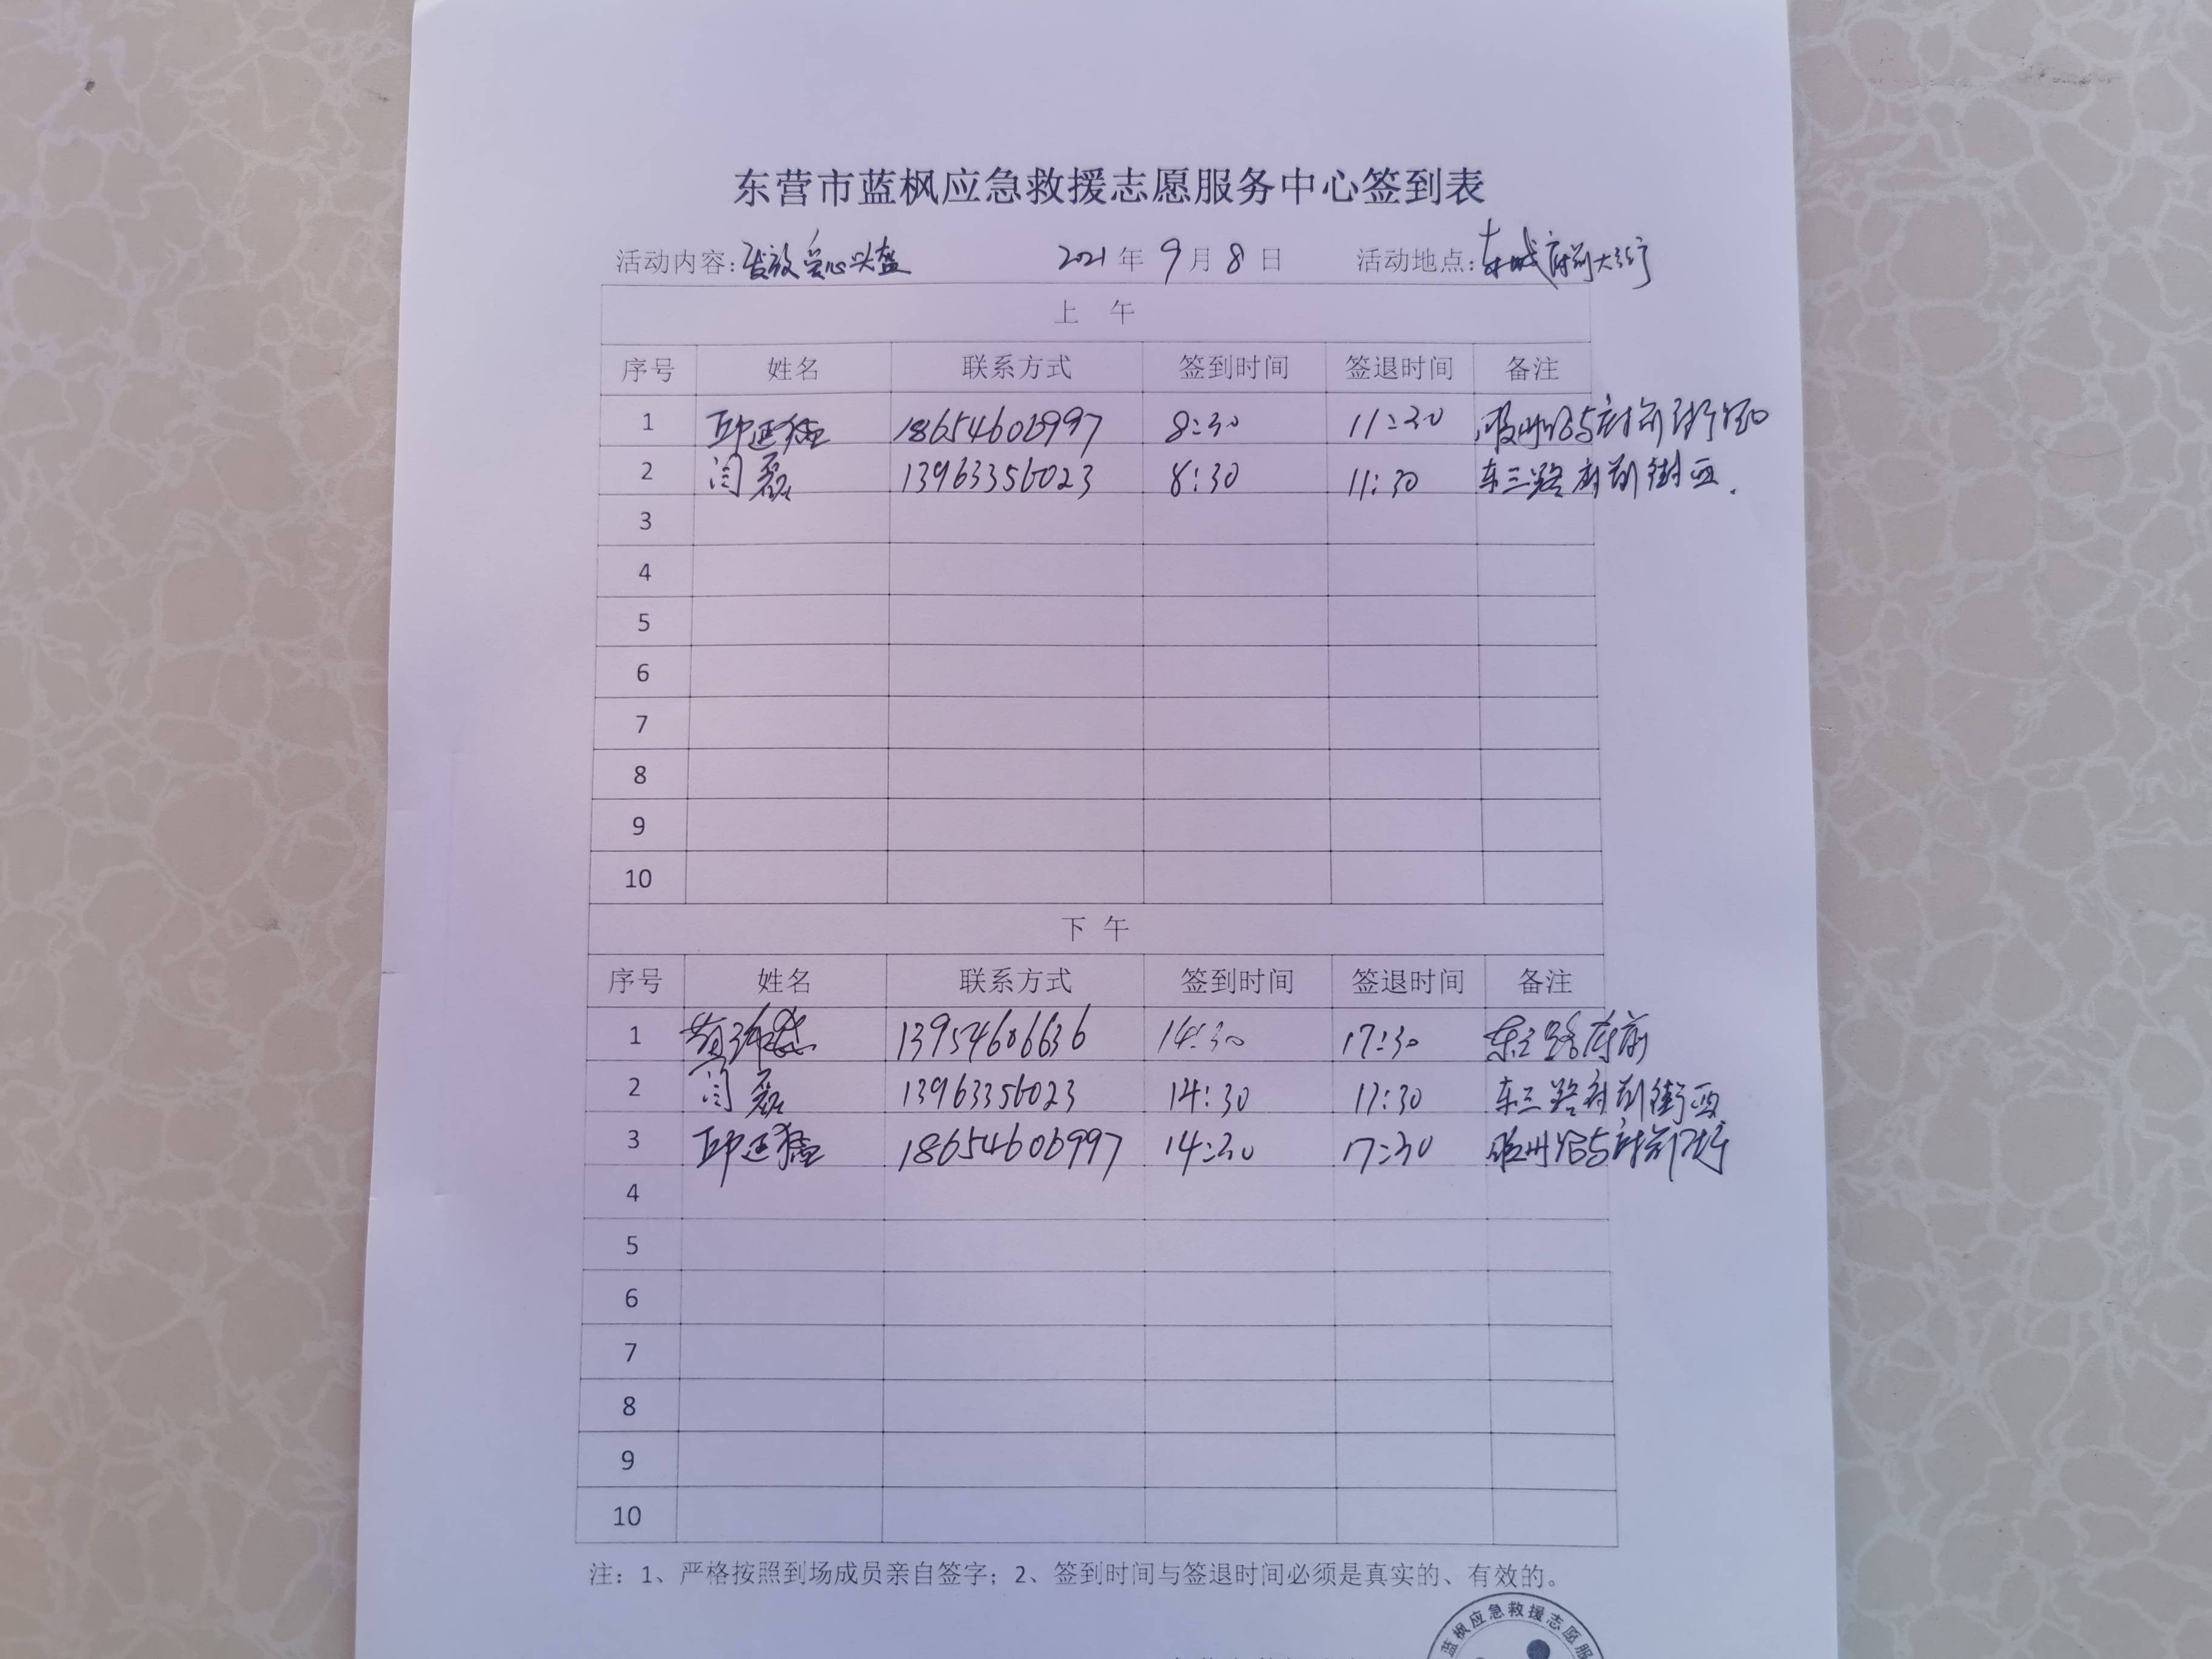 东营市蓝枫应急救援志愿服务中心签到表
活动内容:发放爱心头盔 2021年 9月 8日 活动地点:东城府前大街
上 午
序号 姓名 联系方式 签到时间 签退时间 备注
1 邱延猛 18654606997 8:30 11:30 胶州路与府前街
2 闫磊 13963356023 8:30 11:30 东三路府前街西.
3
4
5
6
7
8
9
10
下 午
序号 姓名 联系方式 签到时间 签退时间 备注
1 13954606636 14:30 17:30 东三路府前
2 闫磊 13963356023 14:30 17:30 东三路府前街西
3 邱延猛 18654606997 14:30 17:30 胶州路与府前
4
5
6
7
8
9
10
注：1、严格按照到场成员亲自签字；2、签到时间与签退时间必须是真实的、有效的。
蓝枫应急救援志愿服